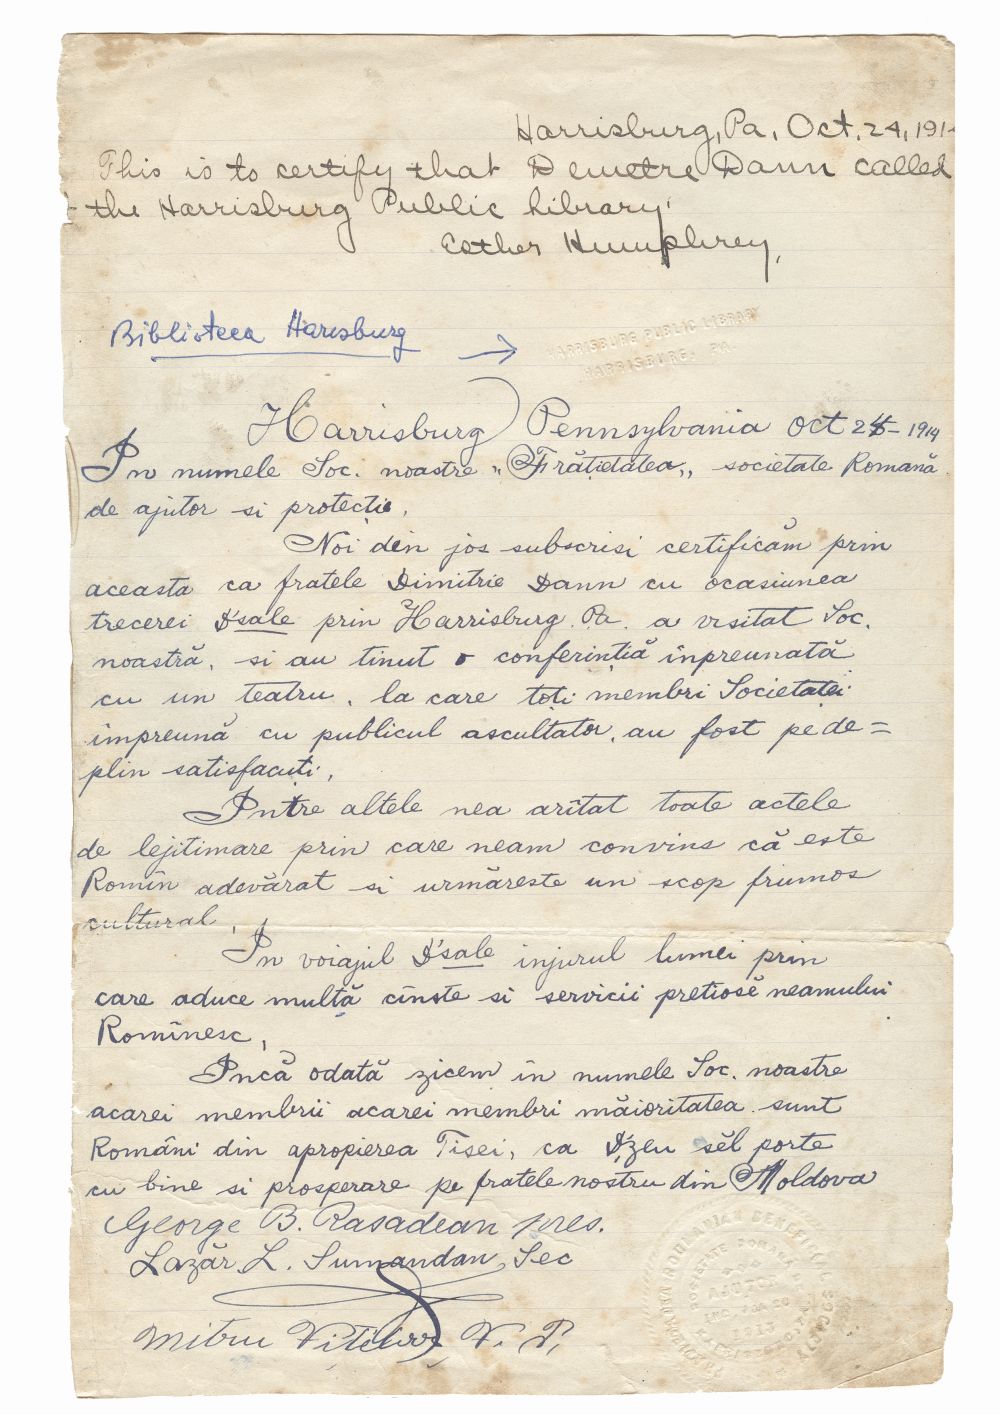 Harrisburg, Pa, Oct. 24, 191
This is to certify that Demetre Dann called
the Harrisburg Public Library.
Esther Humphrey,
Biblioteca Harisburg
HARRISBURG PUBLIC LIBRARY
HARRISBURG, PA.
Harrisburg Pennsylvania Oct 24- 1914
In numele Soc. noastre „Frățietatea„ societate Romană
de ajutor si protecție.
Noi din jos subscrisi certificăm prin
aceasta ca fratele Dimitrie Dann cu ocasiunea
trecerei D'sale prin Harrisburg Pa. a visitat Soc.
noastră, si au tinut o conferințiă inpreunată
cu un teatru, la care toți membri Societatei
impreună cu publicul ascultator, au fost pe de=
plin satisfacuți.
Intre altele nea arîtat toate actele
de lejitimare prin care neam convins că este
Romîn adevărat si urmăreste un scop frumos
cultural.
In voiajul D'sale injurul lumei prin
care aduce multă cînste si servicii pretiosĕ neamului
Romînesc,
Incă odată zicem in numele Soc. noastre
acarei membrii acarei membri măioritatea sunt
Români din apropierea Tisei, ca D'zeu sĕl porte
cu bine si prosperare pe fratele nostru din Moldova
George B. Rasadean pres.
Lazăr L. Sumandan, Sec
Mitru V. P.